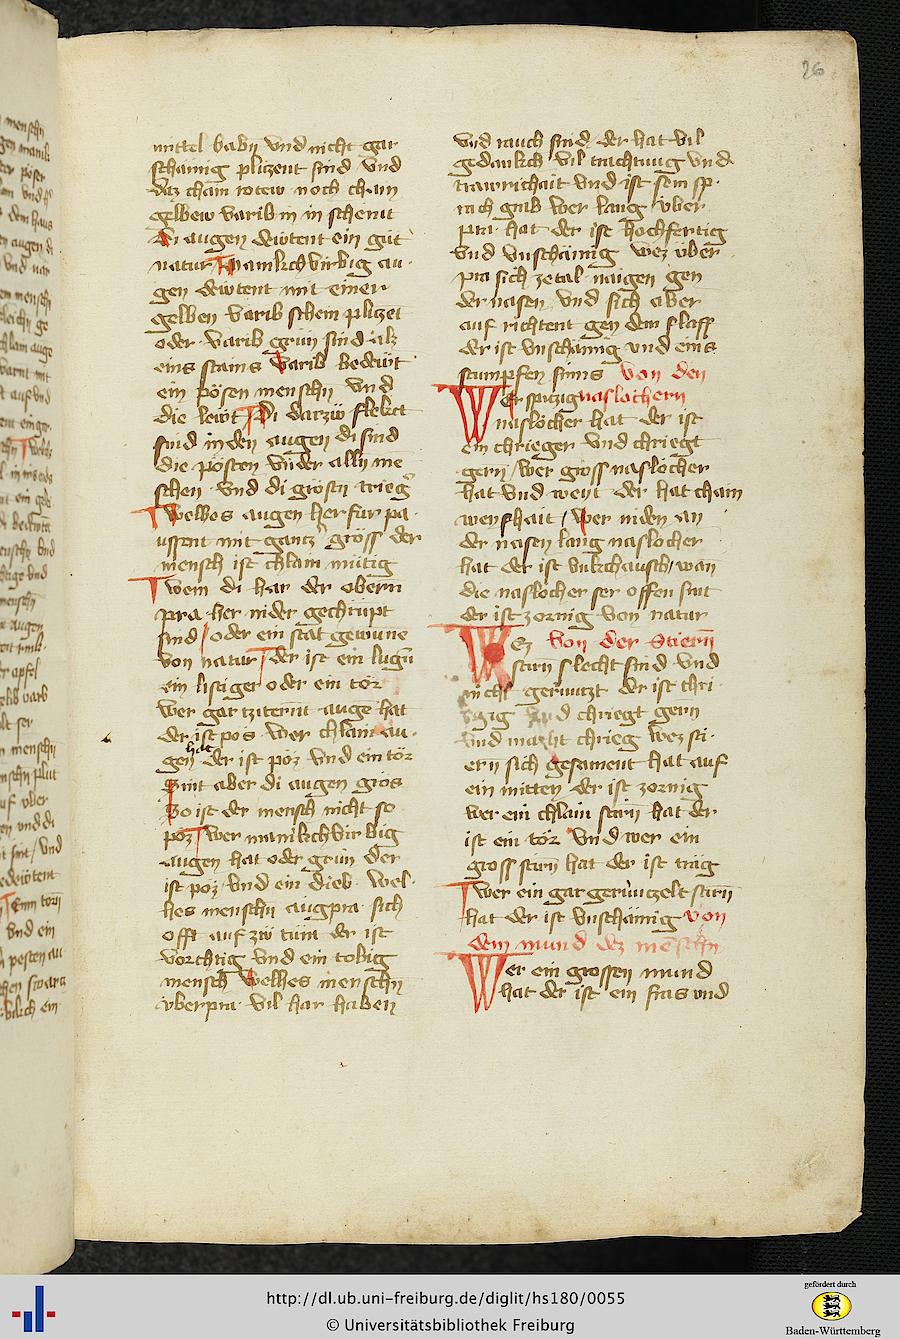 26
mittel habn vnd nicht gar
schainig plitzent sind vnd
daz chain rotew noch chain
gelbew varib in in scheint
Di augen dewtent ein gut
natur Manikchvirbig au-
gen dewtent mit einer
gelben varib schein plitzet
oder varib grun sind alz
eins stains varib bedewt
ein pösen menschn vnd
die lewt Di darzw flekct
sind in den augen di sind
die pösten vnder alln me
schen vnd di gröstn trieg
Welhes augen her fur pa
ussent mit gantz gröss der
mensch ist chlain mütig
Wem di har der obern
pra her nider gechrüpt
sind oder ein stat gewune
von natur der ist ein lugn
ein listiger oder ein tor
wer gar tziternt auge hat
der ist pös wer chlain au-
gen hat der ist pöz vnd ein tör
Sint aber di augen gros
So ist der mensch nicht so
pöz wer manikchvirbig
augen hat oder grün der
ist pöz vnd ein dieb wel-
hes menschn augpra sich
offt auf zw tuin der ist
vorchtig vnd ein tobig
mensch welhes menschn
vberpra vil har haben
vnd rauch sind der hat vil
gedankch vil trachtung vnd
trawrichait vnd ist sein sp-
rach grab wer lang vber
pra hat der ist hochfertig
vnd vnschämig wez vber
pra sich zetal naigen gen
der nasen vnd sich aber
auf richtent gen dem slaff
der ist vnschämig vnd eins
stumpfen sinns von den
Wer spitzig naslöchern
naslöcher hat der ist
ein chrieger vnd chriegt
gern wer gross naslöcher
hat vnd weyt der hat chain
weyshait wer niden an
der nasen lang naslocher
hat der ist vnkchausch wan
die naslocher ser offen sint
der ist zornig von natur
Wez von der Stiern
stirn slecht sind vnd
nicht geruntzt der ist chri
egig vnd chriegt gern
vnd macht chrieg wez sti-
ern sich gesament hat auf
ein mitten der ist zornig
wer ein chlain stirn hat der
ist ein tör vnd wer ein
gross stirn hat der ist träg
wer ein gar geruntzelt stirn
hat der ist vnschämig von
dem mund dez menschn
Wer ein grossen mund
hat der ist ein fras vnd
http://dl.ub.uni-freiburg.de/diglit/hs180/0055
© Universitätsbibliothek Freiburg
gefördert durch
Baden-Württemberg